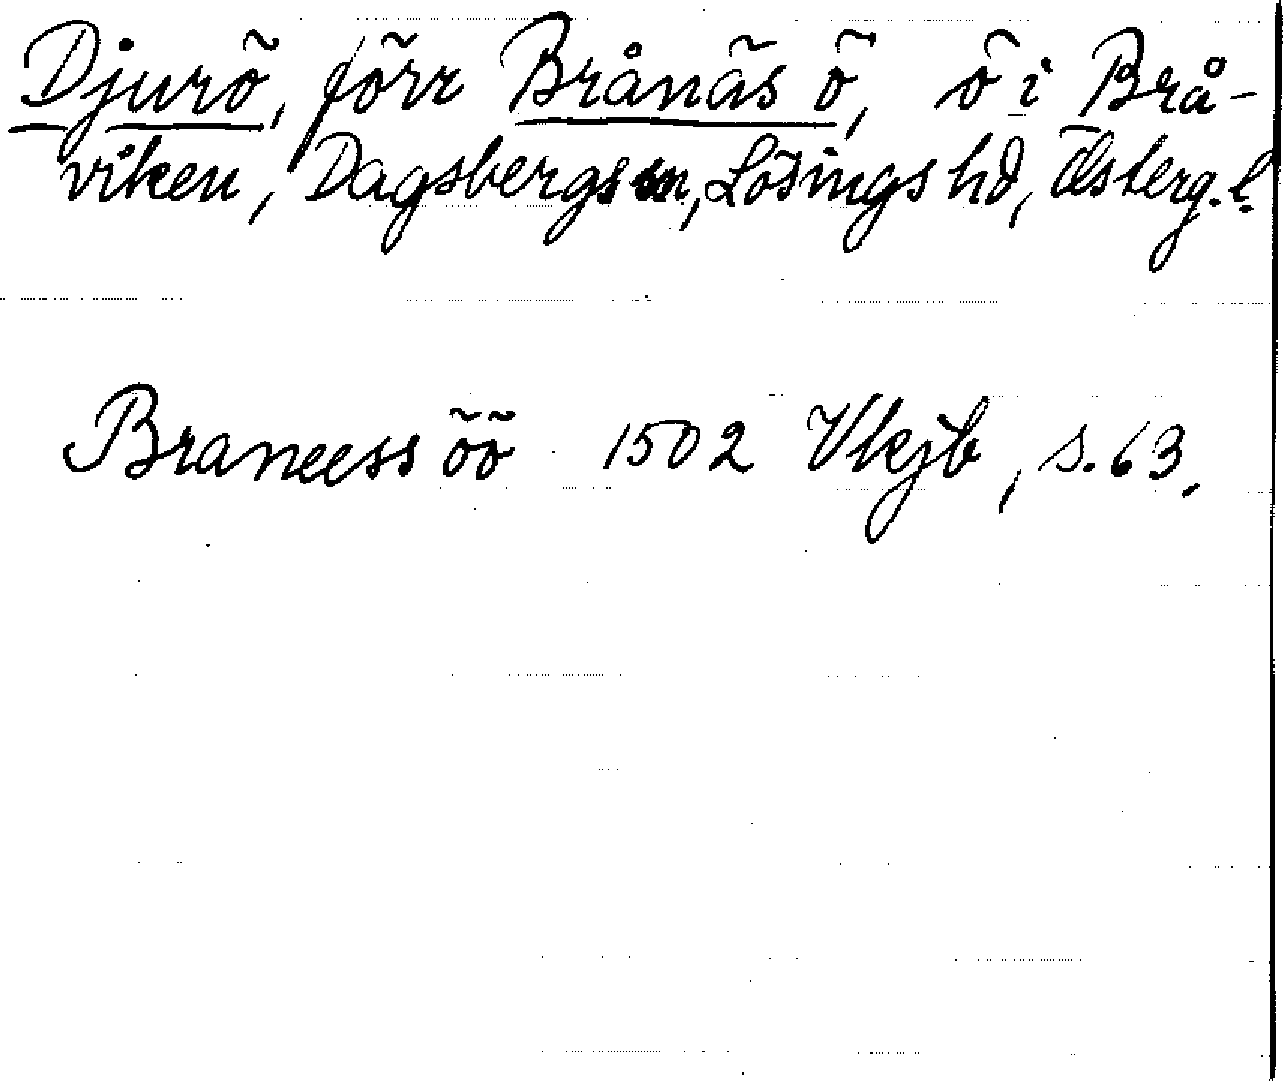 Djurö, förr Brånäs ö, ö i Brå-
viken, Dagsbergs sn, Lösings hd, Östberg. l.
Braneess öö 1502 Vkjb, s. 63.